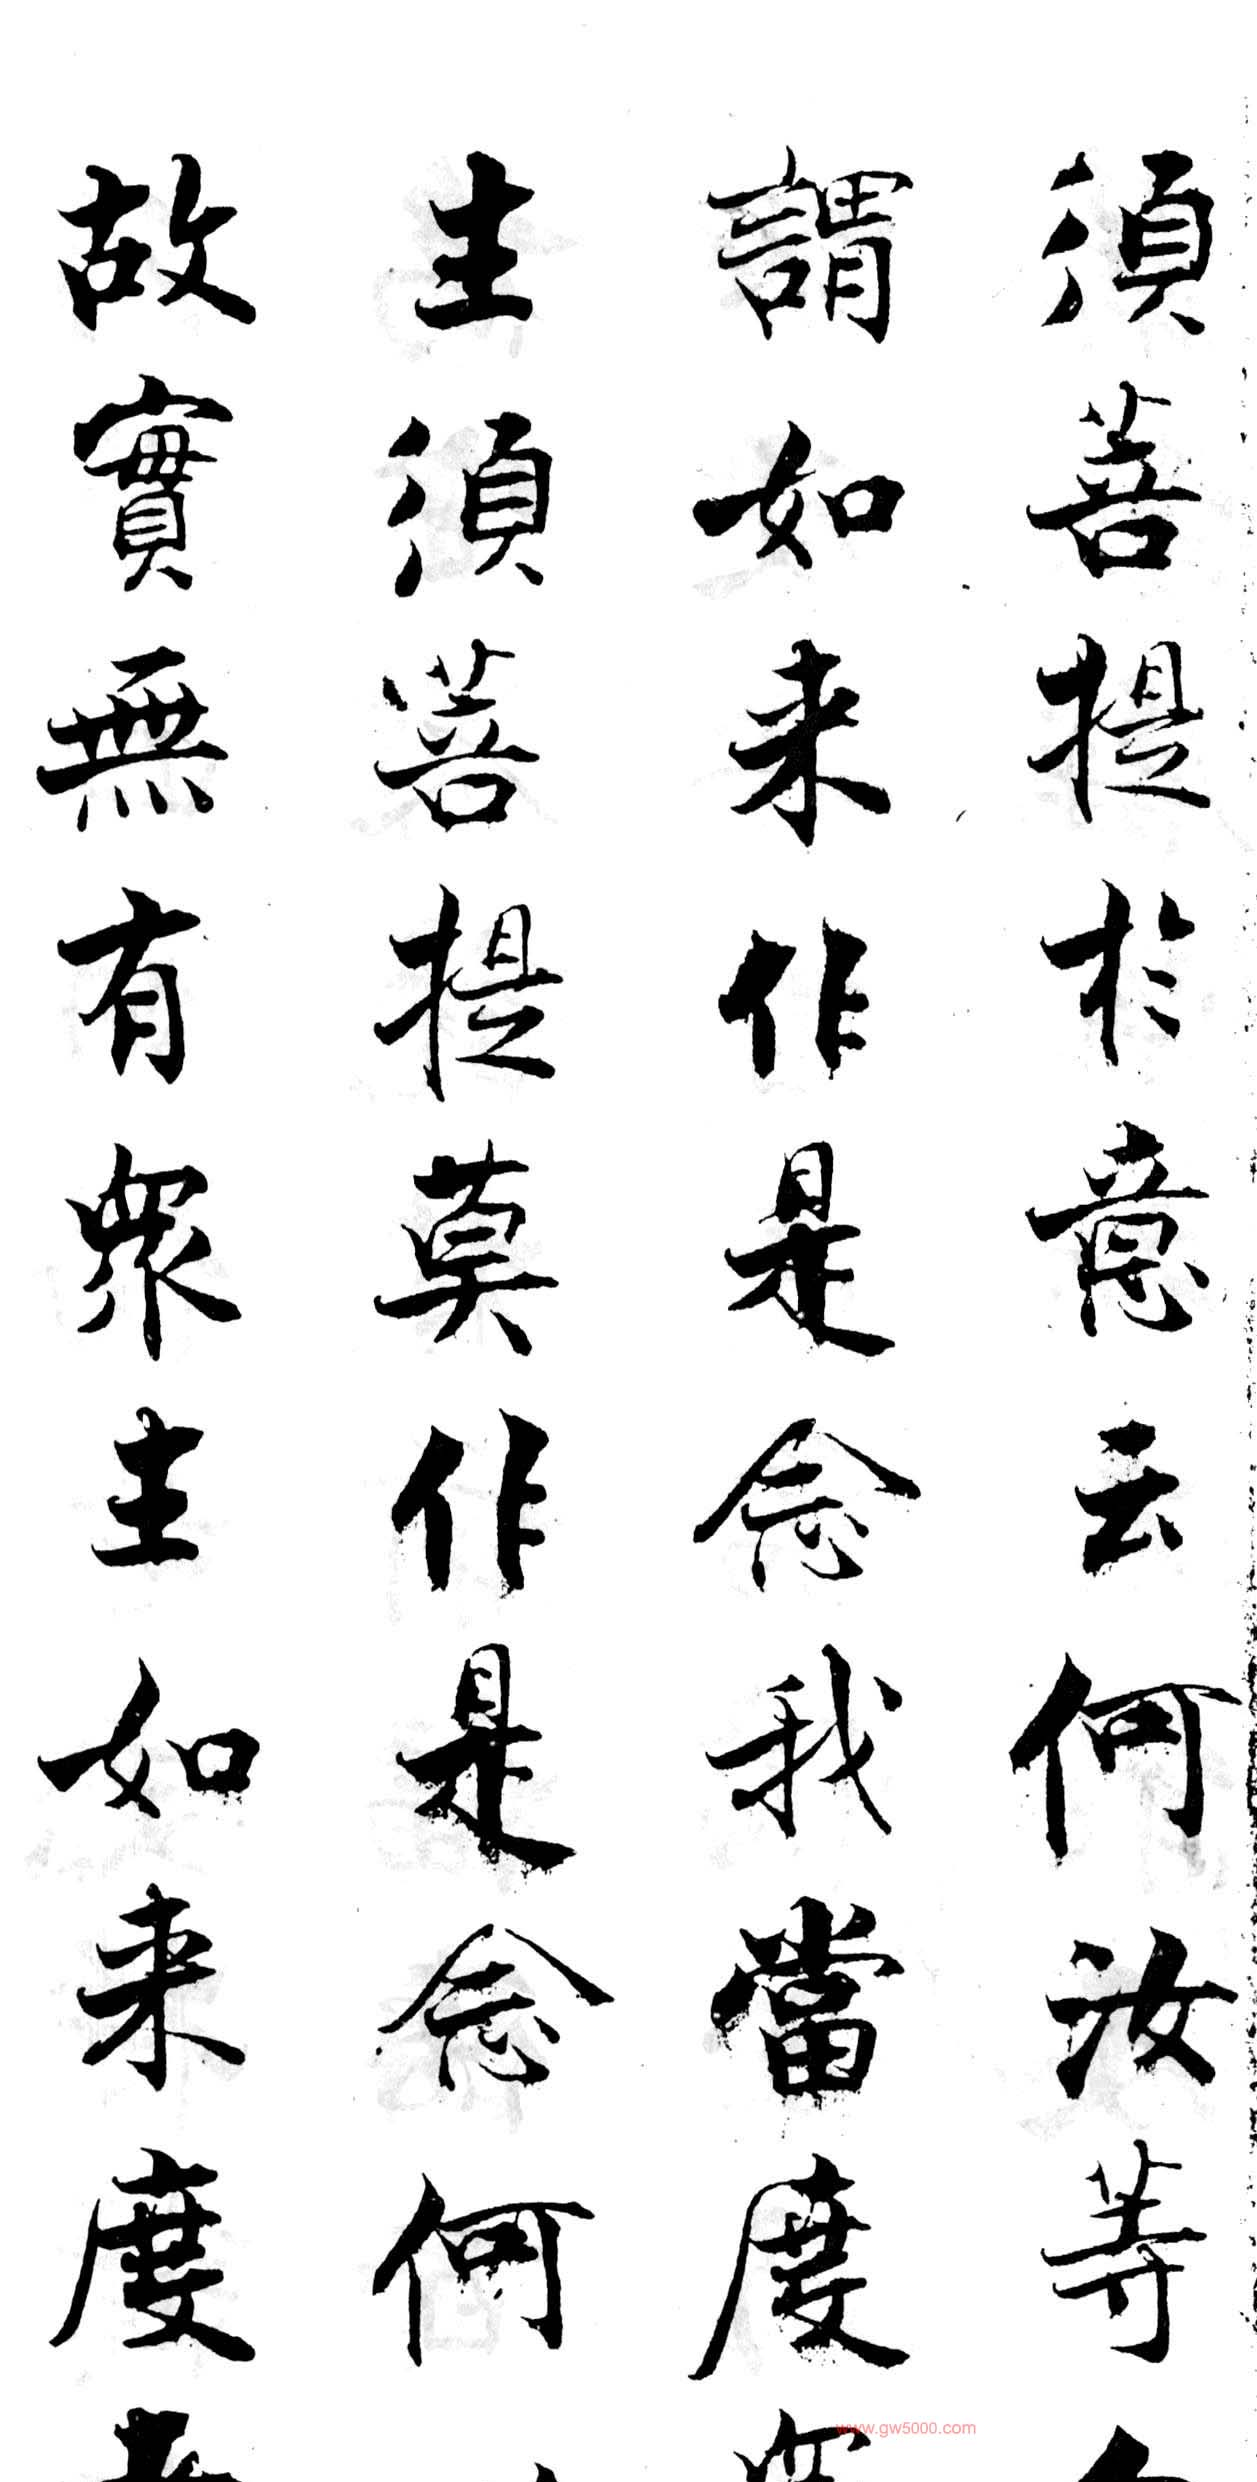 須菩提於意云何汝等
謂如来作是念我當度
生須菩提莫作是念何
故實無有眾生如来度
www.gw5000.com